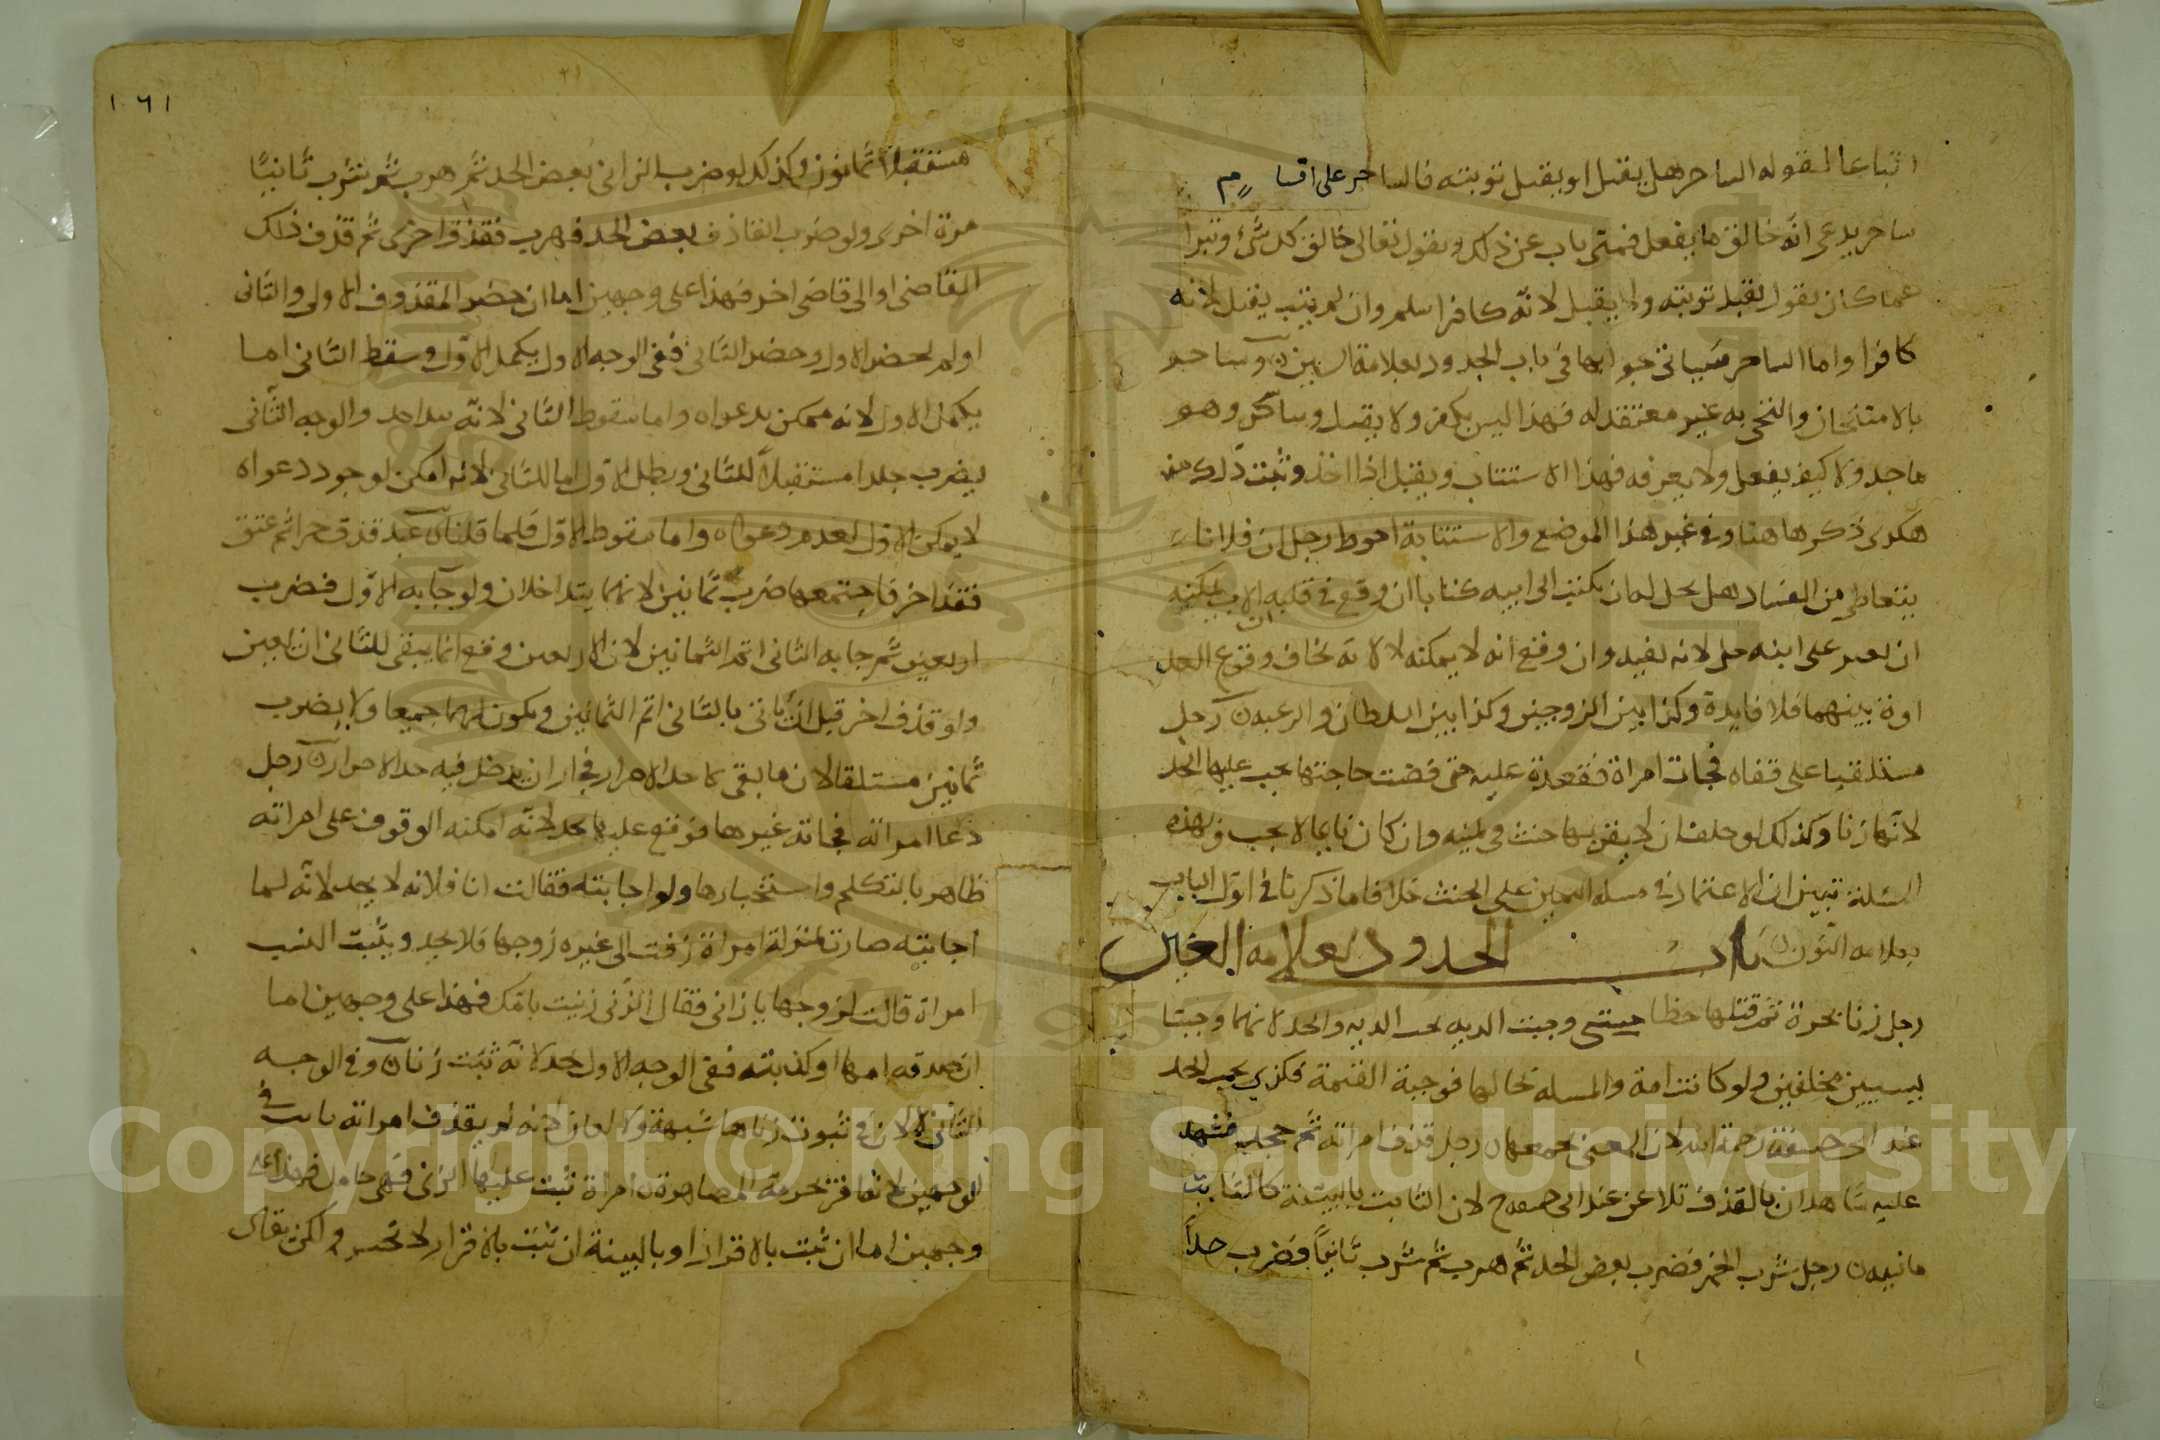 اتباعا لقوله الساحر هل يقبل او يقبل توبته فالساحر على اقسام
ساحر يدعى انه خالق ما يفعل فمتى تاب عن ذلك ويقول تعالى خالق كل شئ وتبرا
عما كان يقول يقبل توبته ولا يقبل لانه كافر اسلم وان لم يتب يقبل لانه
كافرا واما الساحر فسياتى جوابها فى باب الحدود بعلامة وساحر
بالامتحان والتجربه غير معتقد له فهذا ليس بكفر ولا يقبل وساحر وهو
ماجد ولا كيف يفعل ولا يعرفه فهذا الا ستتاب ويقبل اذا اخذ وثبت ذلك منه
هكذى ذكر هاهنا وفى غير هذا الموضع والاستتابة احوط رجل ان فلانا
يتعاطى من الفساد هل يحل له ان يكتب الى ابيه كتابا ان وقع فى قلبه ان الاب يمكنه
ان يعير على ابنه حل لانه يفيد وان وقع انه لا يمكنه لا لانه يخاف وقوع العد
اوة بينهما فلا فايدة وكذا بين الزوجين وكذا بين السلطان والرعيه رجل
مستلقيا على قفاه فجات امراة فقعدة عليه حتى قضت حاجتها يجب عليها الحد
لانها زنا وكذلك لو حلف ان لا يقربها حنث فى يمينه وان كان نايما لا يجب وبهذه
المسئلة تبين ان الاعتماد فى مسلة اليمين على الحنث خلافا ما ذكرنا فى اول الباب
بعلامه النون باب الحدود بعلامه العين
رجل زنا بحرة ثم قتلها خطا حتى وجبت الديه يجب الديه والحد لانهما وجبتا
بسببين مختلفين ولو كانت امة والمسلة بحالها فوجبة القيمة فكذى يجب الحد
عند ابى حنيفة رحمة الله لان المعنى يجمعهما رجل قذف امراته ثم جحد فشهد
عليه شاهدان بالقذف تلاعن عند ابى ح لان الثابت بالبينة كالثابت
رجل شرب الخمر فضرب بعض الحد ثم هرب ثم شرب ثانيا فضرب حدا
مستقبلا ثمانون وكذلك لو ضرب الزانى بعض الحد ثم هرب ثم شرب ثانيا
مرة اخرى ولو ضرب القاذف بعض الحد فهرب فقذف اخرى ثم قذف ذلك
القاضى او الى قاضى اخر فهذا على وجهين اما ان حضر المقذوف الاولى والثانى
او لم يحضر الاول وحضر الثانى ففى الوجه الاول يكمل الاول وسقط الثانى اما
يكمل الاول لانه ممكن بدعواه واما سقوط الثانى لانه والوجه الثانى
يضرب جلدا مستقبلا للثانى وبطل الاول اما للثانى لانه امكن لوجود دعواه
لا يمكن الاول لعدم دعواه واما سقوط الاول فلما قلنا عبد قذف حرا ثم عتق
فقذ اخر فاجتمعوا ضرب ثمانين لانهما يتداخلان ولو جابه الاول فضرب
اربعين ثم جا به الثانى اتم الثمانين لان الاربعين وقع انما يبقى للثانى اربعين
ولو قذف اخر قبل ان ياتى بالثانى اتم الثمانين ويكون لهما جميعا ولا يضرب
ثمانين مستلقا لان ما بقى كما حد الاحرار فجاز ان يدخل فيه حد الاحرار رجل
دعا امراته فجاته غيرها فوقع عليها يحد لانه امكنه الوقوف على امراته
ظاهر بالتكلم واستخبارها ولو اجابته فقالت انا فلانه لا يحد لانه لما
اجابته صارت بمنزلة امراة زفت الى غيره زوجها فلا يحد ويثبت النسب
امراة قالت لزوجها يا زانى فقال الزنى زنيت بامك فهذا على وجهين اما
ان صدقه امها او كذبته ففى الوجه الاول يحد لانه ثبت زنا وفى الوجه
الثانى لا لان فى ثبوت زناها شبهة وكا لعان لانه لم يقذف امراته بانت فى
الوجهين لانها اقر بحرمة المصاهرة امراة ثبت عليها الزنى فهى حامل فهذا على
وجهين اما ان ثبت بالاقرار او بالبينة ان ثبت بالاقرار لا تحبس ولكن يقال